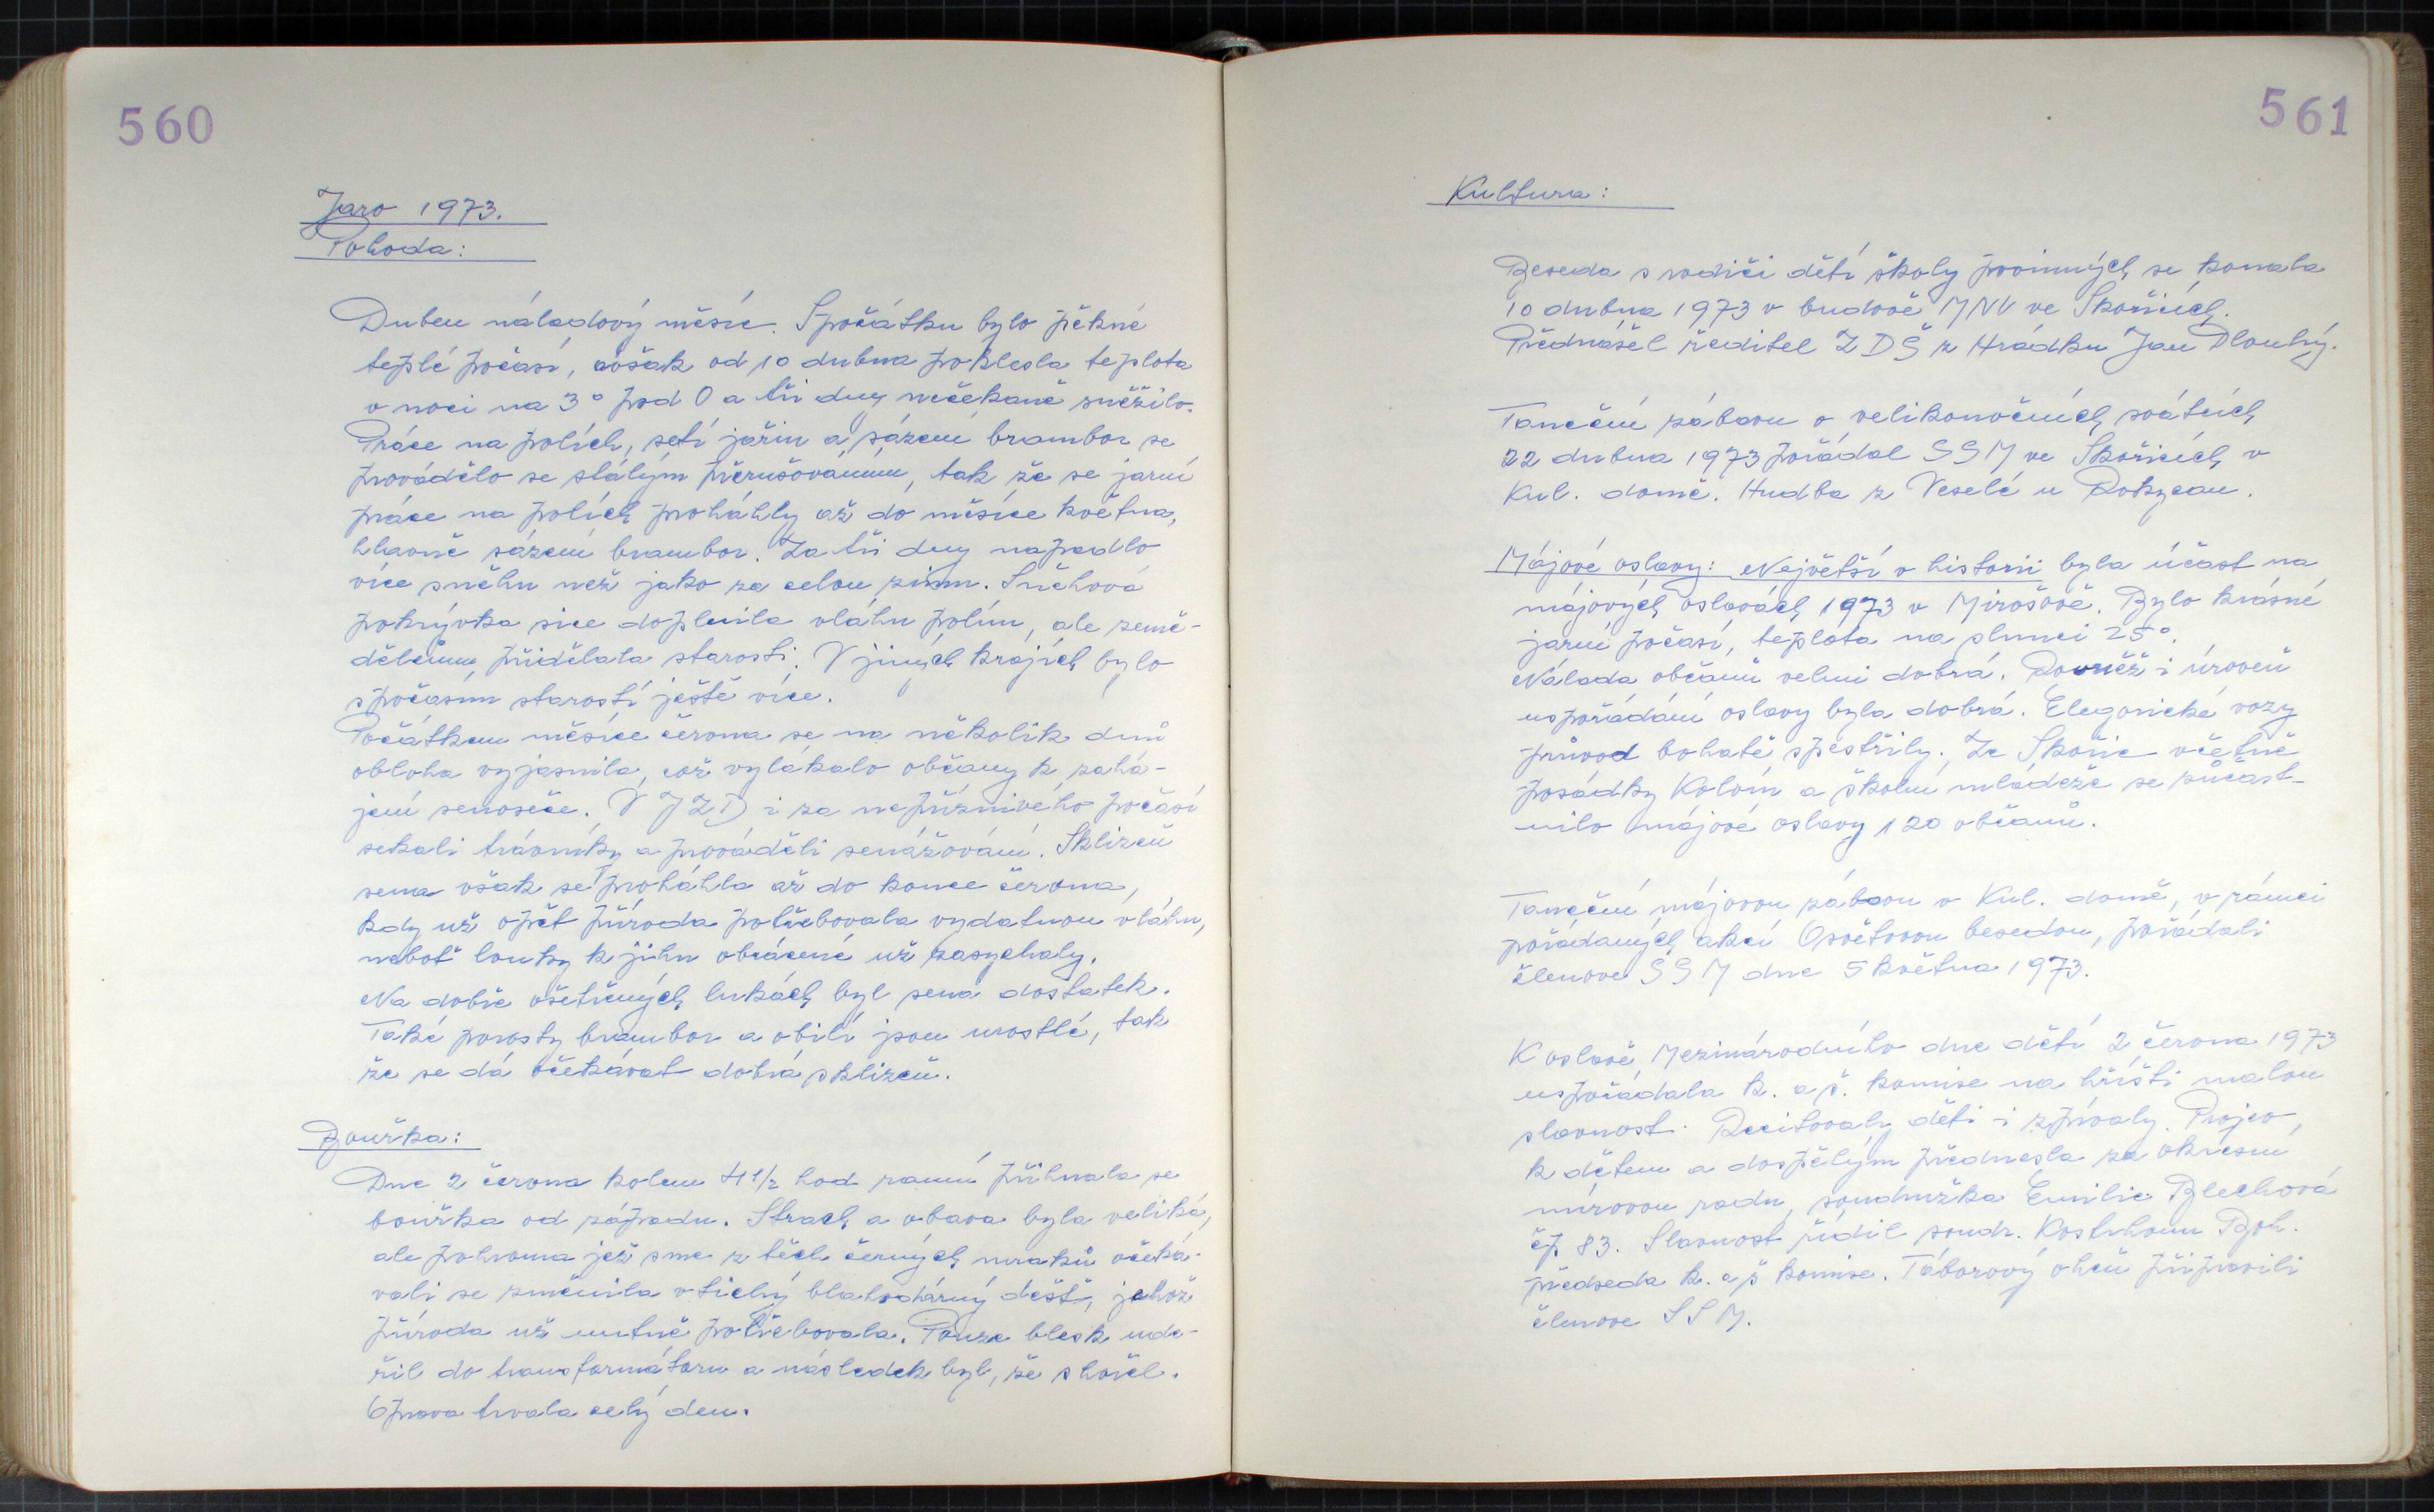 560
Jaro 1973.
Pohoda:
Duben náladový měsíc. Spočátku bylo pěkné
teplé počasí, avšak od 10 dubna poklesla teplota
v noci na 3° pod 0 a tři dny nečekaně sněžilo.
Práce na polích, setí jařin a sázení brambor se
provádělo se stálým přerušováním, tak že se jarní
práce na polích protáhly až do měsíce května,
hlavně sázení brambor. Za tři dny napadlo
více sněhu než jako za celou zimu. Sněhová
pokrývka sice doplnila vláhu polím, ale země-
dělcům přidělala starosti. V jiných krajích bylo
s počasím starostí ještě více.
Počátkem měsíce června se na několik dnů
obloha vyjasnila, což vylákalo občany k zahá-
jení senoseče. V JZD i za nepříznivého počasí
sekali trávníky a prováděli senážování. Sklizeň
sena však se protáhla až do konce června,
kdy už opět příroda potřebovala vydatnou vláhu,
neboť louky k jihu obrácené už zasychaly.
Na dobře ošetřených lukách byl sena dostatek.
Také porosty brambor a obilí jsou urostlé, tak
že se dá očekávat dobrá sklizeň.
Bouřka:
Dne 2 června kolem 4 1/2 hod ranní přihnala se
bouřka od západu. Strach a obava byla veliká,
ale pohroma jež sme z těch černých mraků očeká-
vali se změnila v tichý blahodárný déšť, jehož
příroda už nutně potřebovala. Pouze blesk ude-
řil do transformátoru a následek byl, že shořel.
Oprava trvala celý den.
561
Kultura:
Beseda s rodiči dětí školy povinných se konala
10 dubna 1973 v budově MNV ve Skořicích.
Přednášel ředitel ZDŠ z Hrádku Jan Dlouhý.
Taneční zábavu o velikonočních svátcích
22 dubna 1973 pořádal SSM ve Skořicích v
Kul. domě. Hudba z Veselé u Rokycan.
Májové oslavy: Největší v historii byla účast na
májových oslavách 1973 v Mirošově. Bylo krásné
jarní počasí, teplota na slunci 25°.
Nálada občanů velmi dobrá. Rovněž i úroveň
uspořádání oslavy byla dobrá. Elegorické vozy
průvod bohatě zpestřily. Ze Skořic včetně
posádky Kolvín a školní mládeže se zúčast-
nilo májové oslavy 120 občanů.
Taneční májovou zábavu v Kul. domě, v rámci
pořádaných akcí Osvětovou besedou, pořádali
členové SSM dne 5 května 1973.
K oslavě Mezinárodního dne dětí 2 června 1973
uspořádala k. a š. komise na hřišti malou
slavnost. Recitovaly děti i zpívaly. Projev,
k dětem a dospělým přednesla za okresní
mírovou radu, soudružka Emilie Blechová
čp 83. Slavnost řídil soudr. Kostrhoun Boh.
předseda k. a š komise. Táborový oheň připravili
členove SSM.